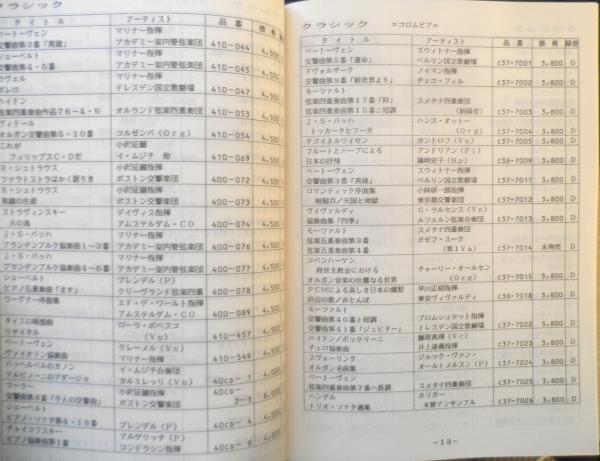 クラシック
タイトル アーティスト 品番
ベートーヴェン マリナー指揮
交響曲第3番『英雄』 アカデミー室内管弦楽団 410-044 4,500
シューベルト マリナー指揮
交響曲第4・5番 アカデミー室内管弦楽団 410-045 4,500
ラヴェル マリナー指揮
ボレロ ドレスデン国立歌劇場 410-047 4,500
ハイドン
弦楽四重奏曲作品76-4・5 オルランド弦楽四重奏団 410-053
ヴィドール
オルガン交響曲第5・10番 コルゼンパ(Org) 410-054
これが 小沢征爾
フィリップスC・Dだ イ・ムジチ 他 410-069
R・シュトラウス 小沢征爾指揮
ツァラトストラはかく語りき ボストン交響楽団 400-072
R・シュトラウス 小沢征爾指揮
英雄の生涯 ボストン交響楽団 400-073
ストラヴィンスキー デイヴィス指揮
火の鳥 アムステルダム・CO 400-074
J・S・バッハ マリナー指揮
ブランデンブルク協奏曲1~3番 アカデミー室内管弦楽団 400-076
J・S・バッハ マリナー指揮
ブランデンブルク協奏曲4~6番 アカデミー室内管弦楽団 400-077
シューベルト ブレンデル(P)
ピアノ五重奏曲『ます』 クリーヴランド弦楽四重 400-078
ワーグナー序曲集 エド・デ・ワールト指揮
アムステルダム・CO 400-089
タイスの瞑想曲 ローラ・ボベスコ
リサイタル (Vn) 410-457
ベートーヴェン クレーメル(Vn)
ヴァイオリン協奏曲 マリナー指揮 410-549
パッヘルベルのカノン イ・ムジチ合奏団
アルビノーニのアダージョ カルミレッリ(Vn) 40CD-1
マーラー 小沢征爾指揮 40CD-
交響曲第8番『千人の交響曲』 ボストン交響楽団 2~3
シューベルト
ピアノ・ソナタ第4・13番 ブレンデル(P) 40CD-4
チャイコフスキー アルゲリッチ(P)
ピアノ協奏曲第1番 コンドラシン指揮 40CD-8
クラシック =コロムビア=
タイトル アーティスト 品番 価格 録音
ベートーヴェン スウィトナー指揮
交響曲第5番『運命』 ベルリン国立歌劇場 C37-7001 3,800 D
ドヴォルザーク ノイマン指揮
交響曲第9番『新世界より』 チェコ・フィル C37-7002 3,800 D
モーツァルト
弦楽四重奏曲第17番『狩』 スメタナ四重奏団
弦楽四重奏曲第15番ニ短調 (新録音) C37-7003 3,800 D
J・S・バッハ ハンス・オットー
トッカータとフーガ (Org) C37-7004 3,800 D
チゴイネルワイゼン カントロフ(Vn) C37-7005 3,800 D
フルートとハープによる アンドリアン(Fl)
日本の抒情 篠崎史子(Hp) C38-7009 3,800 D
ベートーヴェン スウィトナー指揮
交響曲第3番『英雄』 ベルリン国立歌劇場 C37-7011 3,800 D
ロマンティック序曲集 小林研一郎指揮
軽騎兵/天国と地獄 東京都交響楽団 C37-7012 3,800 D
ヴィヴァルディ G・ラルセンス(Vn)
協奏曲集『四季』 ルツェルン弦楽合奏団 C37-7013 3,800 D
モーツァルト スメタナ四重奏団
弦楽五重奏曲第3番 ヨゼフ・スーク
弦楽五重奏曲第4番 (第1Va) C37-7014 未発売 D
コペンハーゲン
救世主教会における チャーリー・オールセン
オルガン音楽の壮麗なる世界 (Org) C37-7015 3,800 D
PCMによる美しき日本の郷愁 早川正昭指揮
浜辺の歌/赤とんぼ 東京ヴィヴァルディ C38-7018 3,800 D
モーツァルト
交響曲第40番ト短調 ブロムシュテット指揮
交響曲第41番『ジュピター』 ドレスデン国立歌劇場 C37-7022 3,800 D
ハイドン/ボッケリーニ 藤原真理(Vc)
チェロ協奏曲 井上道義指揮 C37-7023 3,800 D
スウェーリンク ジャック・ヴァン・
オルガン名曲集 オールトメルスン(P) C37-7024 3,800 D
ベートーヴェン
弦楽四重奏曲第7番ヘ長調 スメタナ四重奏団 C37-7025 3,800 D
ヘンデル ホリガー
トリオ・ソナタ選集 木管アンサンブル C37-7026 3,800 D
-13-